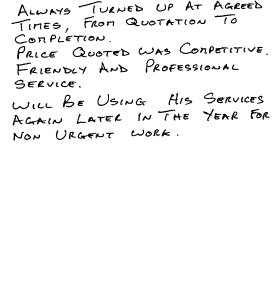 Always Turned up At Agreed
Times, From Quotation To
Completion.
Price Quoted was Competitive.
Friendly And Professional
Service.
Will Be Using His Services
Again Later In The Year For
Non Urgent Work.